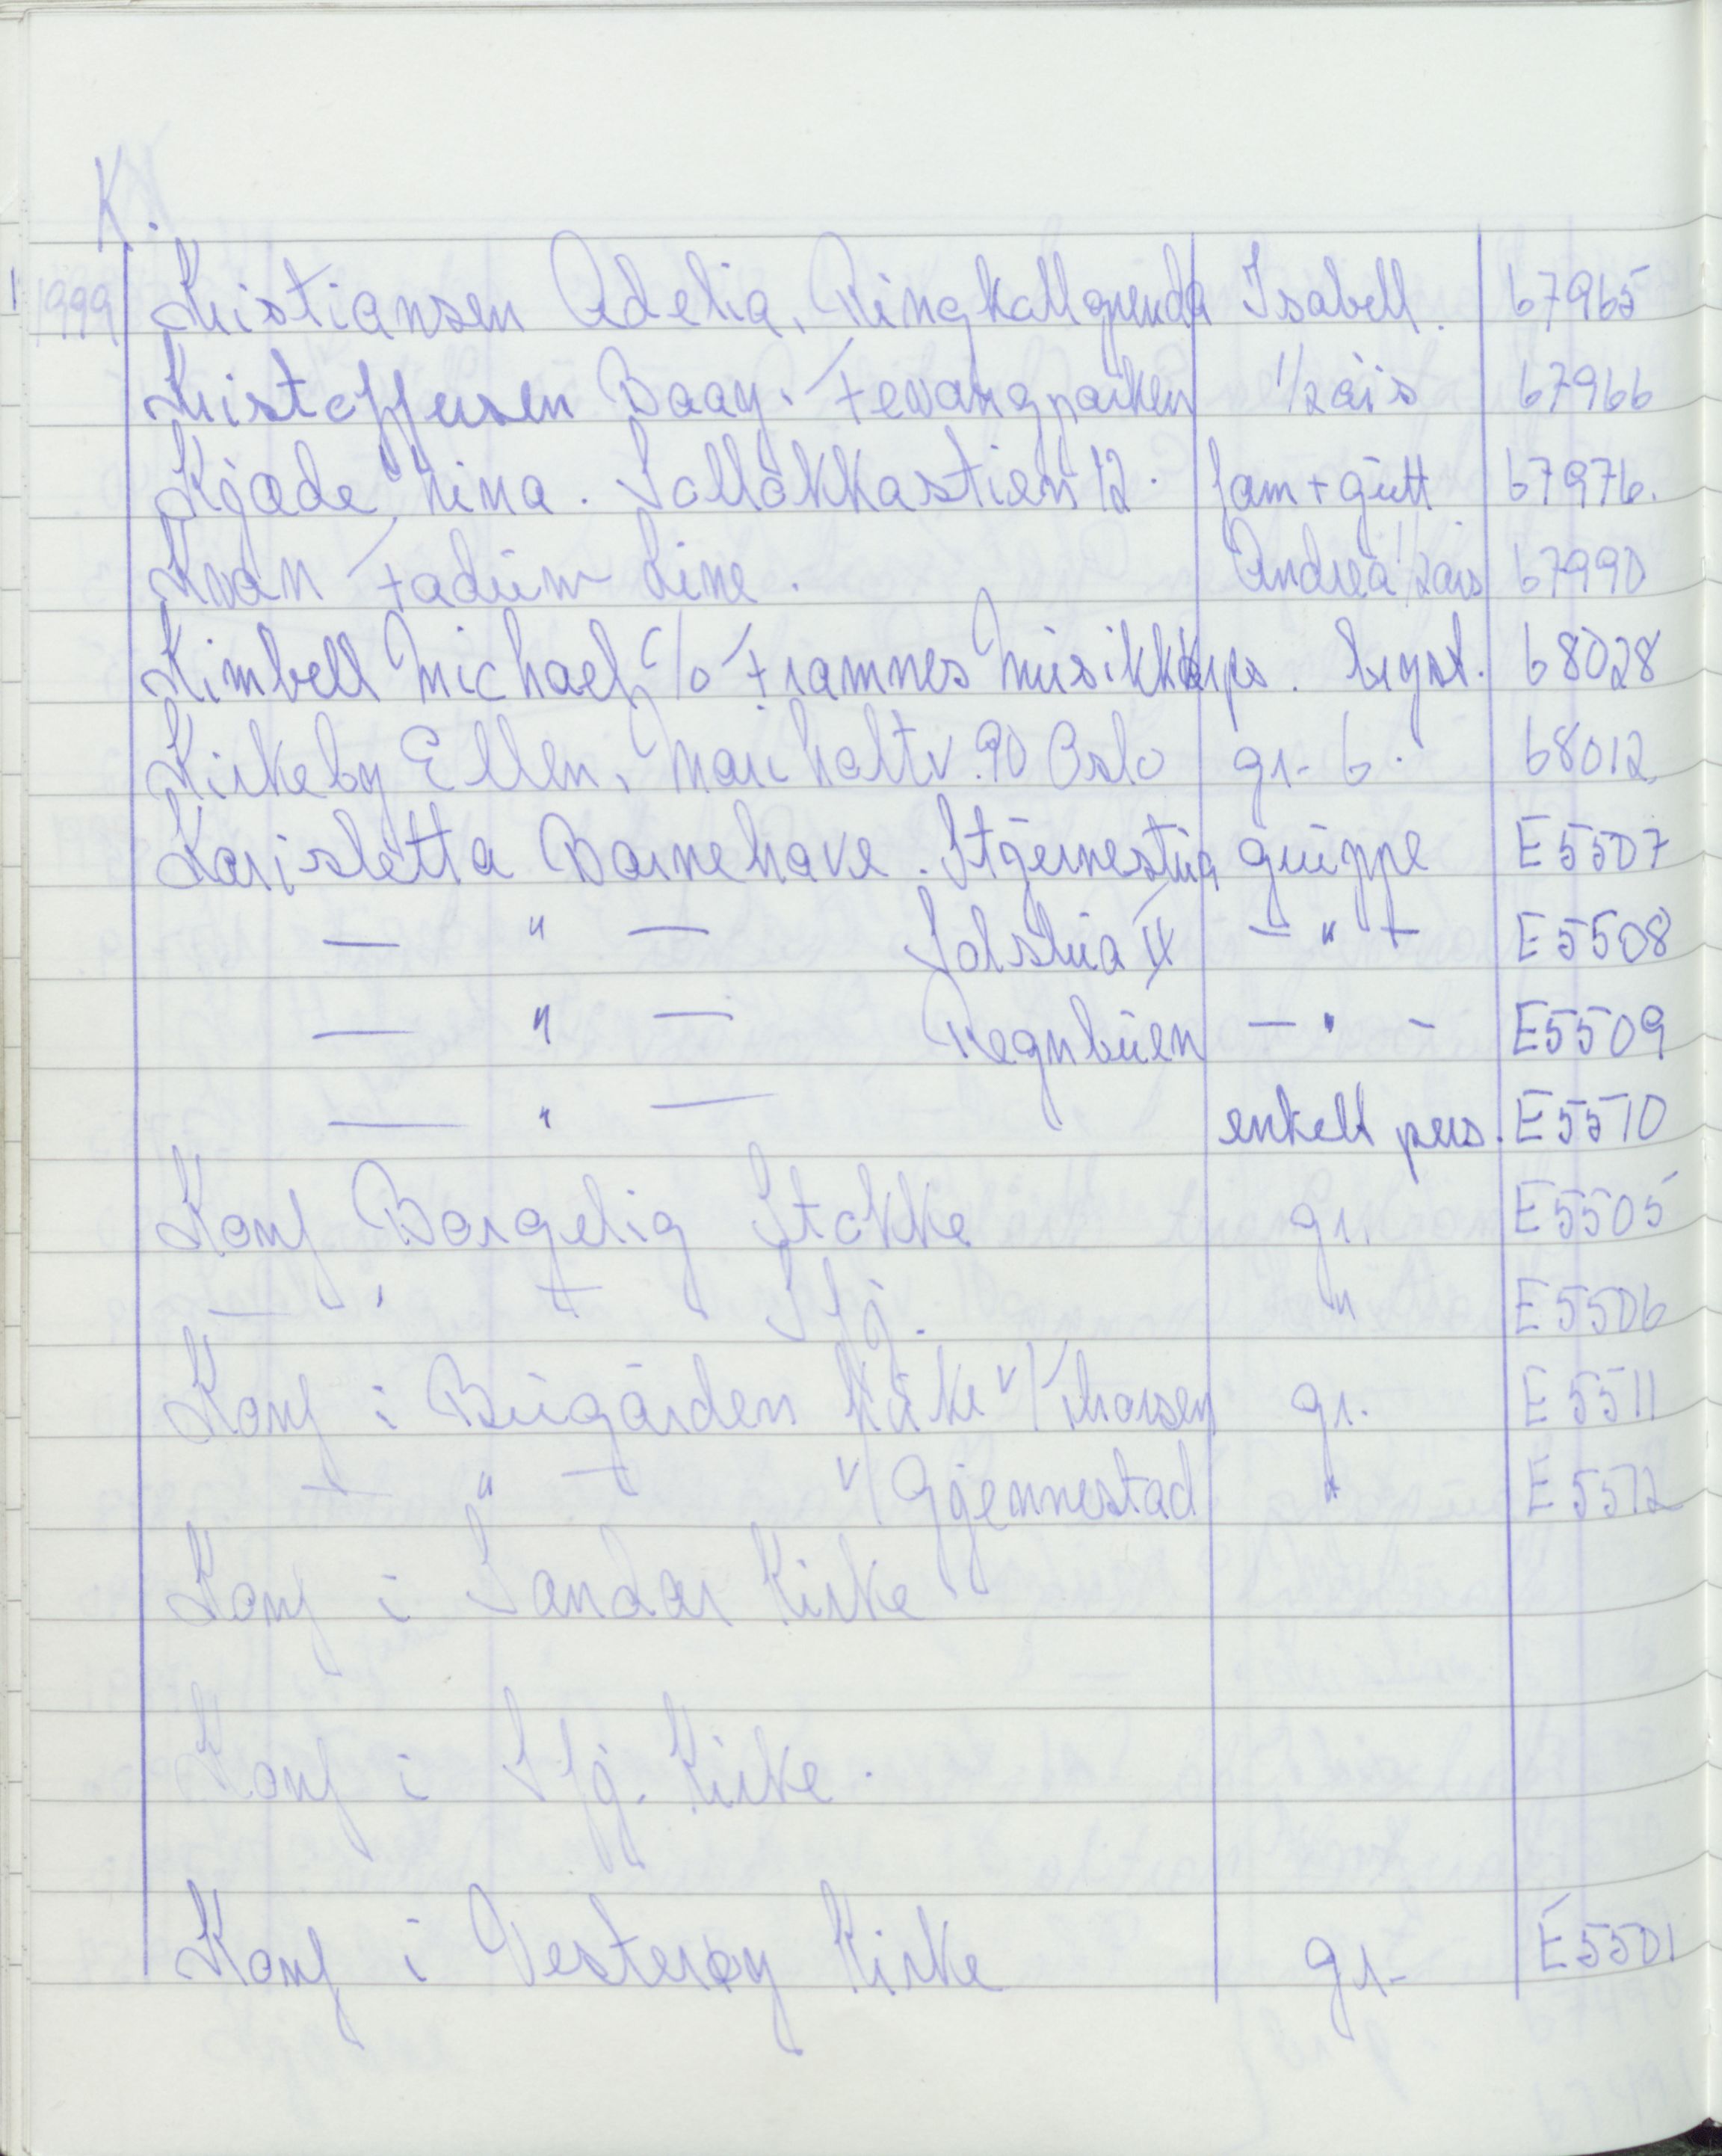 K.
1999 Kristiansen Adelia, Ringkallgrenda Isabell. 67965
Kristoffersen Baay, Fevangparken 1/2 års 67966
Kjæde Nina. Solløkkastien 12. fam + gutt 67976.
Kvan Fadum Line. Andrea 1/2 års 67990
Kimbell Michael, c/o Framnes Musikkkorps. bryst. 68028
Kirkeby Ellen, Mariholtv. 90 Oslo gr. 6. 68012
Karisletta Barnehave. Stjernestua gruppe E5507
— " — Solstua II — " — E5508
— " — Regnbuen — " — E5509
— " — enkelt pers. E5510
Konf Borgelig Stokke gr. E5505
— " — Sfj. " E5506
Konf i Bugården Kirke v/ Thorsen gr. E5511
— " — v/ Gjennestad " E5512
Konf i Sandar Kirke
Konf i Sfj. Kirke.
Konf i Vesterøy Kirke gr. E5501